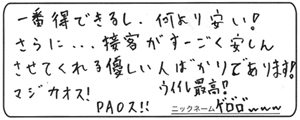 一番得できるし、何より安い!
さらに...接客がすーごく安しん
させてくれる優しい人ばかりであります!
マジカオス! ウイルし最高!
PAOス!! ニックネーム ゲロロwww